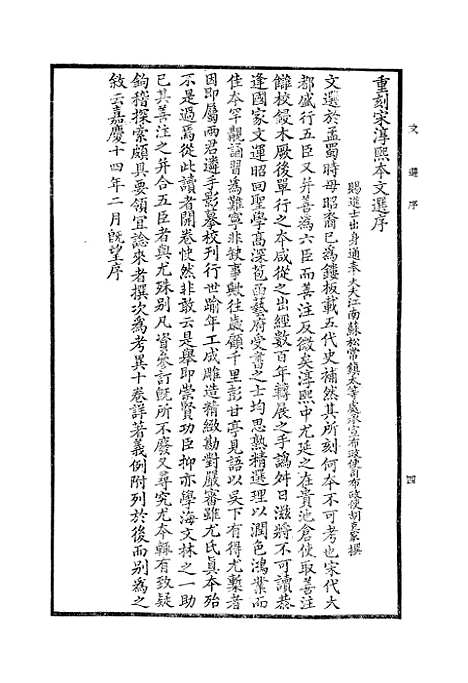 重刻宋淳熙本文選序
賜進士出身通奉大夫江南蘇松常鎮太等處承宣布政使司布政使胡克家撰
文選於孟蜀時毋昭裔已為鏤板載五代史補然其所刻何本不可考也宋代大
都盛行五臣又并善為六臣而善注反微矣淳熙中尤延之在貴池倉使取善注
讎校鋟木厥後單行之本咸從之出經數百年轉展之手譌舛日滋將不可讀恭
逢國家文運昭回聖學高深苞函藝府受書之士均思熟精選理以潤色鴻業而
佳本罕覯誦習為難寧非缺事歟往歲顧千里彭甘亭見語以吳下有得尤槧者
因即屬兩君遴手影摹校刊行世踰年工成雕造精緻勘對嚴審雖尤氏真本殆
不是過焉從此讀者開卷快然非敢云是舉即崇賢功臣抑亦學海文林之一助
已其善注之并合五臣者與尤殊別凡資參訂既所不廢又尋究尤本輒有致疑
鉤稽探索頗具要領宜諗來者撰次為考異十卷詳著義例附列於後而別為之
敘云嘉慶十四年二月既望序
文選序
四